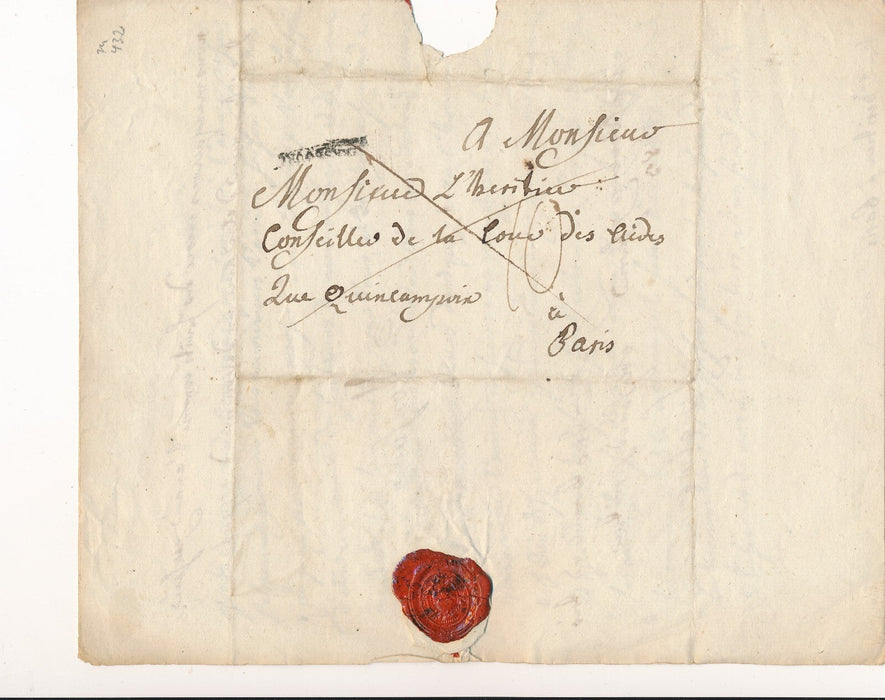 432
A Monsieur
Monsieur L'heritier
Conseiller de la Cour des Aides
Rue Quincampoix
16
à
Paris